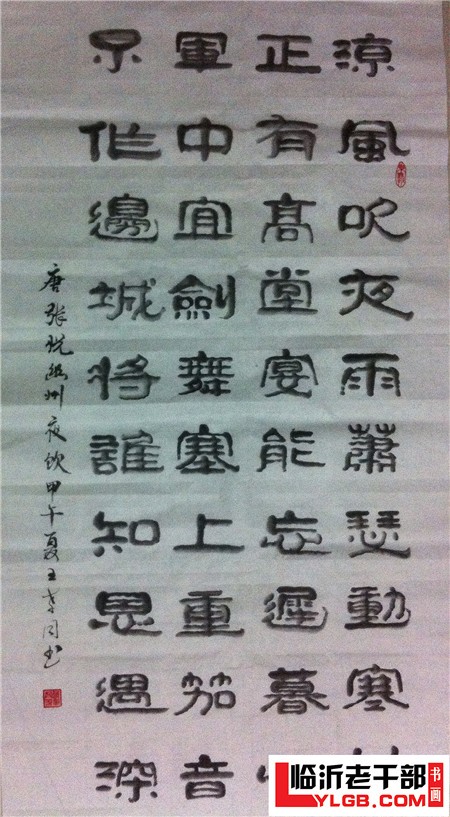 涼風吹夜雨蕭瑟動寒
正有高堂宴能忘遲暮
軍中宜劍舞塞上重笳音
不作邊城將誰知恩遇深
唐张悦幽州夜饮甲午夏王同书
临沂老干部书画
LYLGB.COM